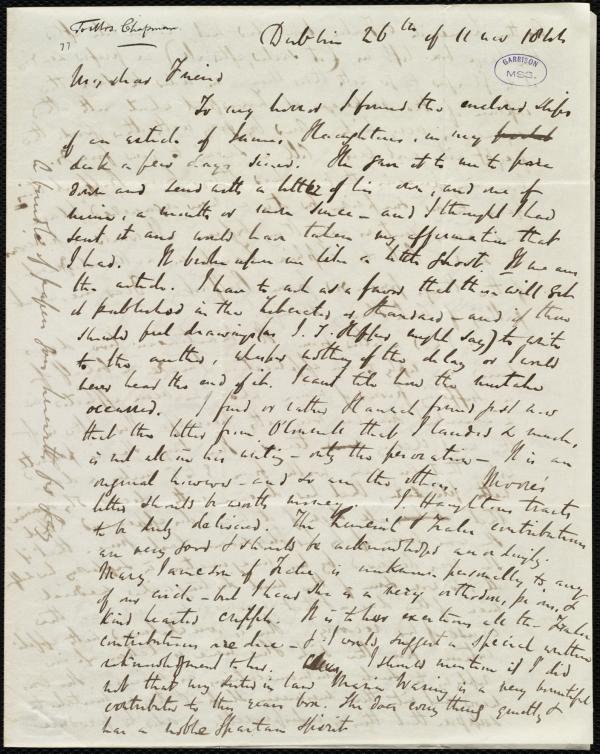 To Mrs. Chapman
77
Dublin 26th of 11 mo 1844
GARRISON
MSS.
My dear Friend
To my horror I found the enclosed slips
of an article of James Haughton's, in my
desk a few days since. He gave it to me to
down and send with a letter of his own, and one of
mine, a month or more since - and I thought I had
sent it and would have taken my affirmation that
I had. It burst upon me like a little ghost.
the article. I have to ask as a favor that you will get
it published in the Liberator or Standard - and if thou
should feel drawings (as would say) to write
to the author, whisper nothing of the delay or I would
never hear the end of it. I cant tell how the mistake
occurred. I find or rather Hannah found just now
that the letter from O'Connell that I lauded so much,
is not all in his writing - only the peroration - It is an
original however - and so are the others. Moore's
letter should be worth money. J. Haughton's tracts
to be duly delivered. The Limerick & Tralee contributions
are very good & should be acknowledged accordingly.
Mary Jameson of Tralee is unknown personally to any
of our circle - but I hear she is a very orthodox, &
kind hearted cripple. It is to her exertions all the Tralee
contributions are due - & I would suggest a special written
acknowledgment to her. I should mention if I did
not that my sister in law Maria Waring is a very bountiful
contributor to this years box. She does everything quietly &
has a noble Spartan spirit.
A bundle of papers for